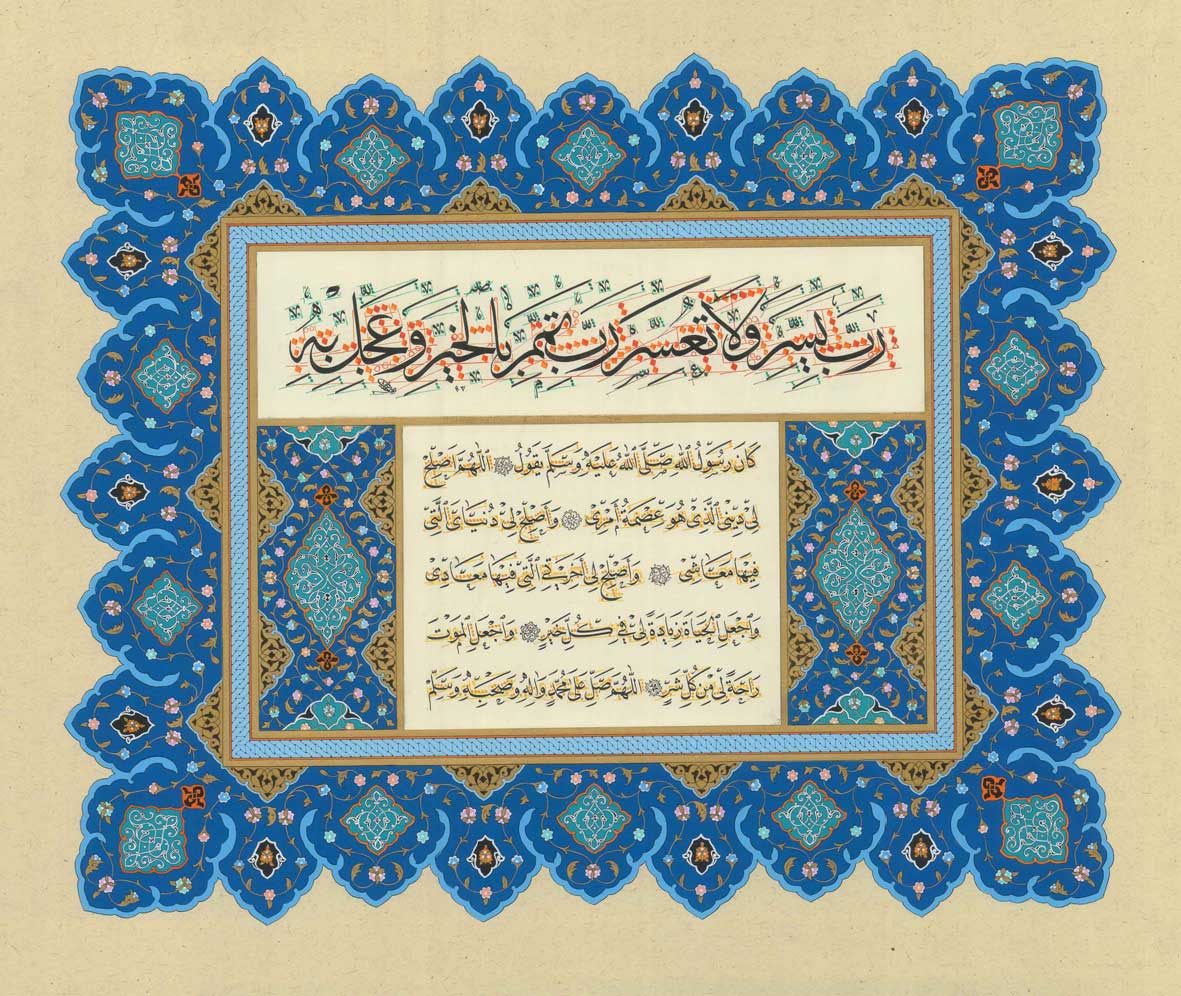 رَبِّ يَسِّرْ وَلَا تُعَسِّرْ رَبِّ تَمِّمْ بِالْخَيْرِ وَعَجِّلْ بِهِ
كَانَ رَسُولُ اللهِ صَلَّى اللهُ عَلَيْهِ وَسَلَّمَ يَقُولُ اَللّٰهُمَّ اَصْلِحْ
لِي دِينِيَ الَّذِي هُوَ عِصْمَةُ أَمْرِي وَاَصْلِحْ لِي دُنْيَايَ الَّتِي
فِيهَا مَعَاشِي وَاَصْلِحْ لِي آخِرَتِيَ الَّتِي فِيهَا مَعَادِي
وَاجْعَلِ الْحَيَاةَ زِيَادَةً لِي فِي كُلِّ خَيْرٍ وَاجْعَلِ الْمَوْتَ
رَاحَةً لِي مِنْ كُلِّ شَرٍّ اَللّٰهُمَّ صَلِّ عَلَى مُحَمَّدٍ وَآلِهِ وَصَحْبِهِ وَسَلِّمْ